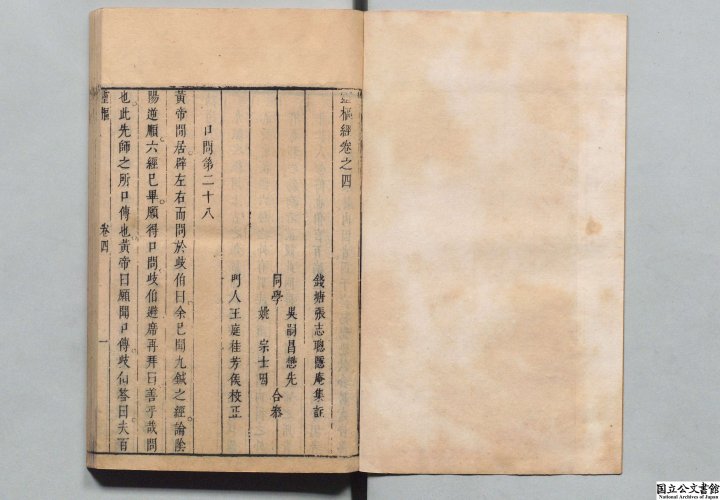 靈樞經卷之四
錢塘張志聰隱庵集註
吳嗣昌懋先
同學
姚宗士因
合參
門人王庭桂芳侯校正
口問第二十八
黃帝閒居辟左右而問於歧伯曰余已聞九鍼之經論陰
陽逆順六經已畢願得口問歧伯避席再拜曰善乎哉問
也此先師之所口傳也黃帝曰願聞口傳歧伯答曰夫百
靈樞
卷四
一
国立公文書館
National Archives of Japan